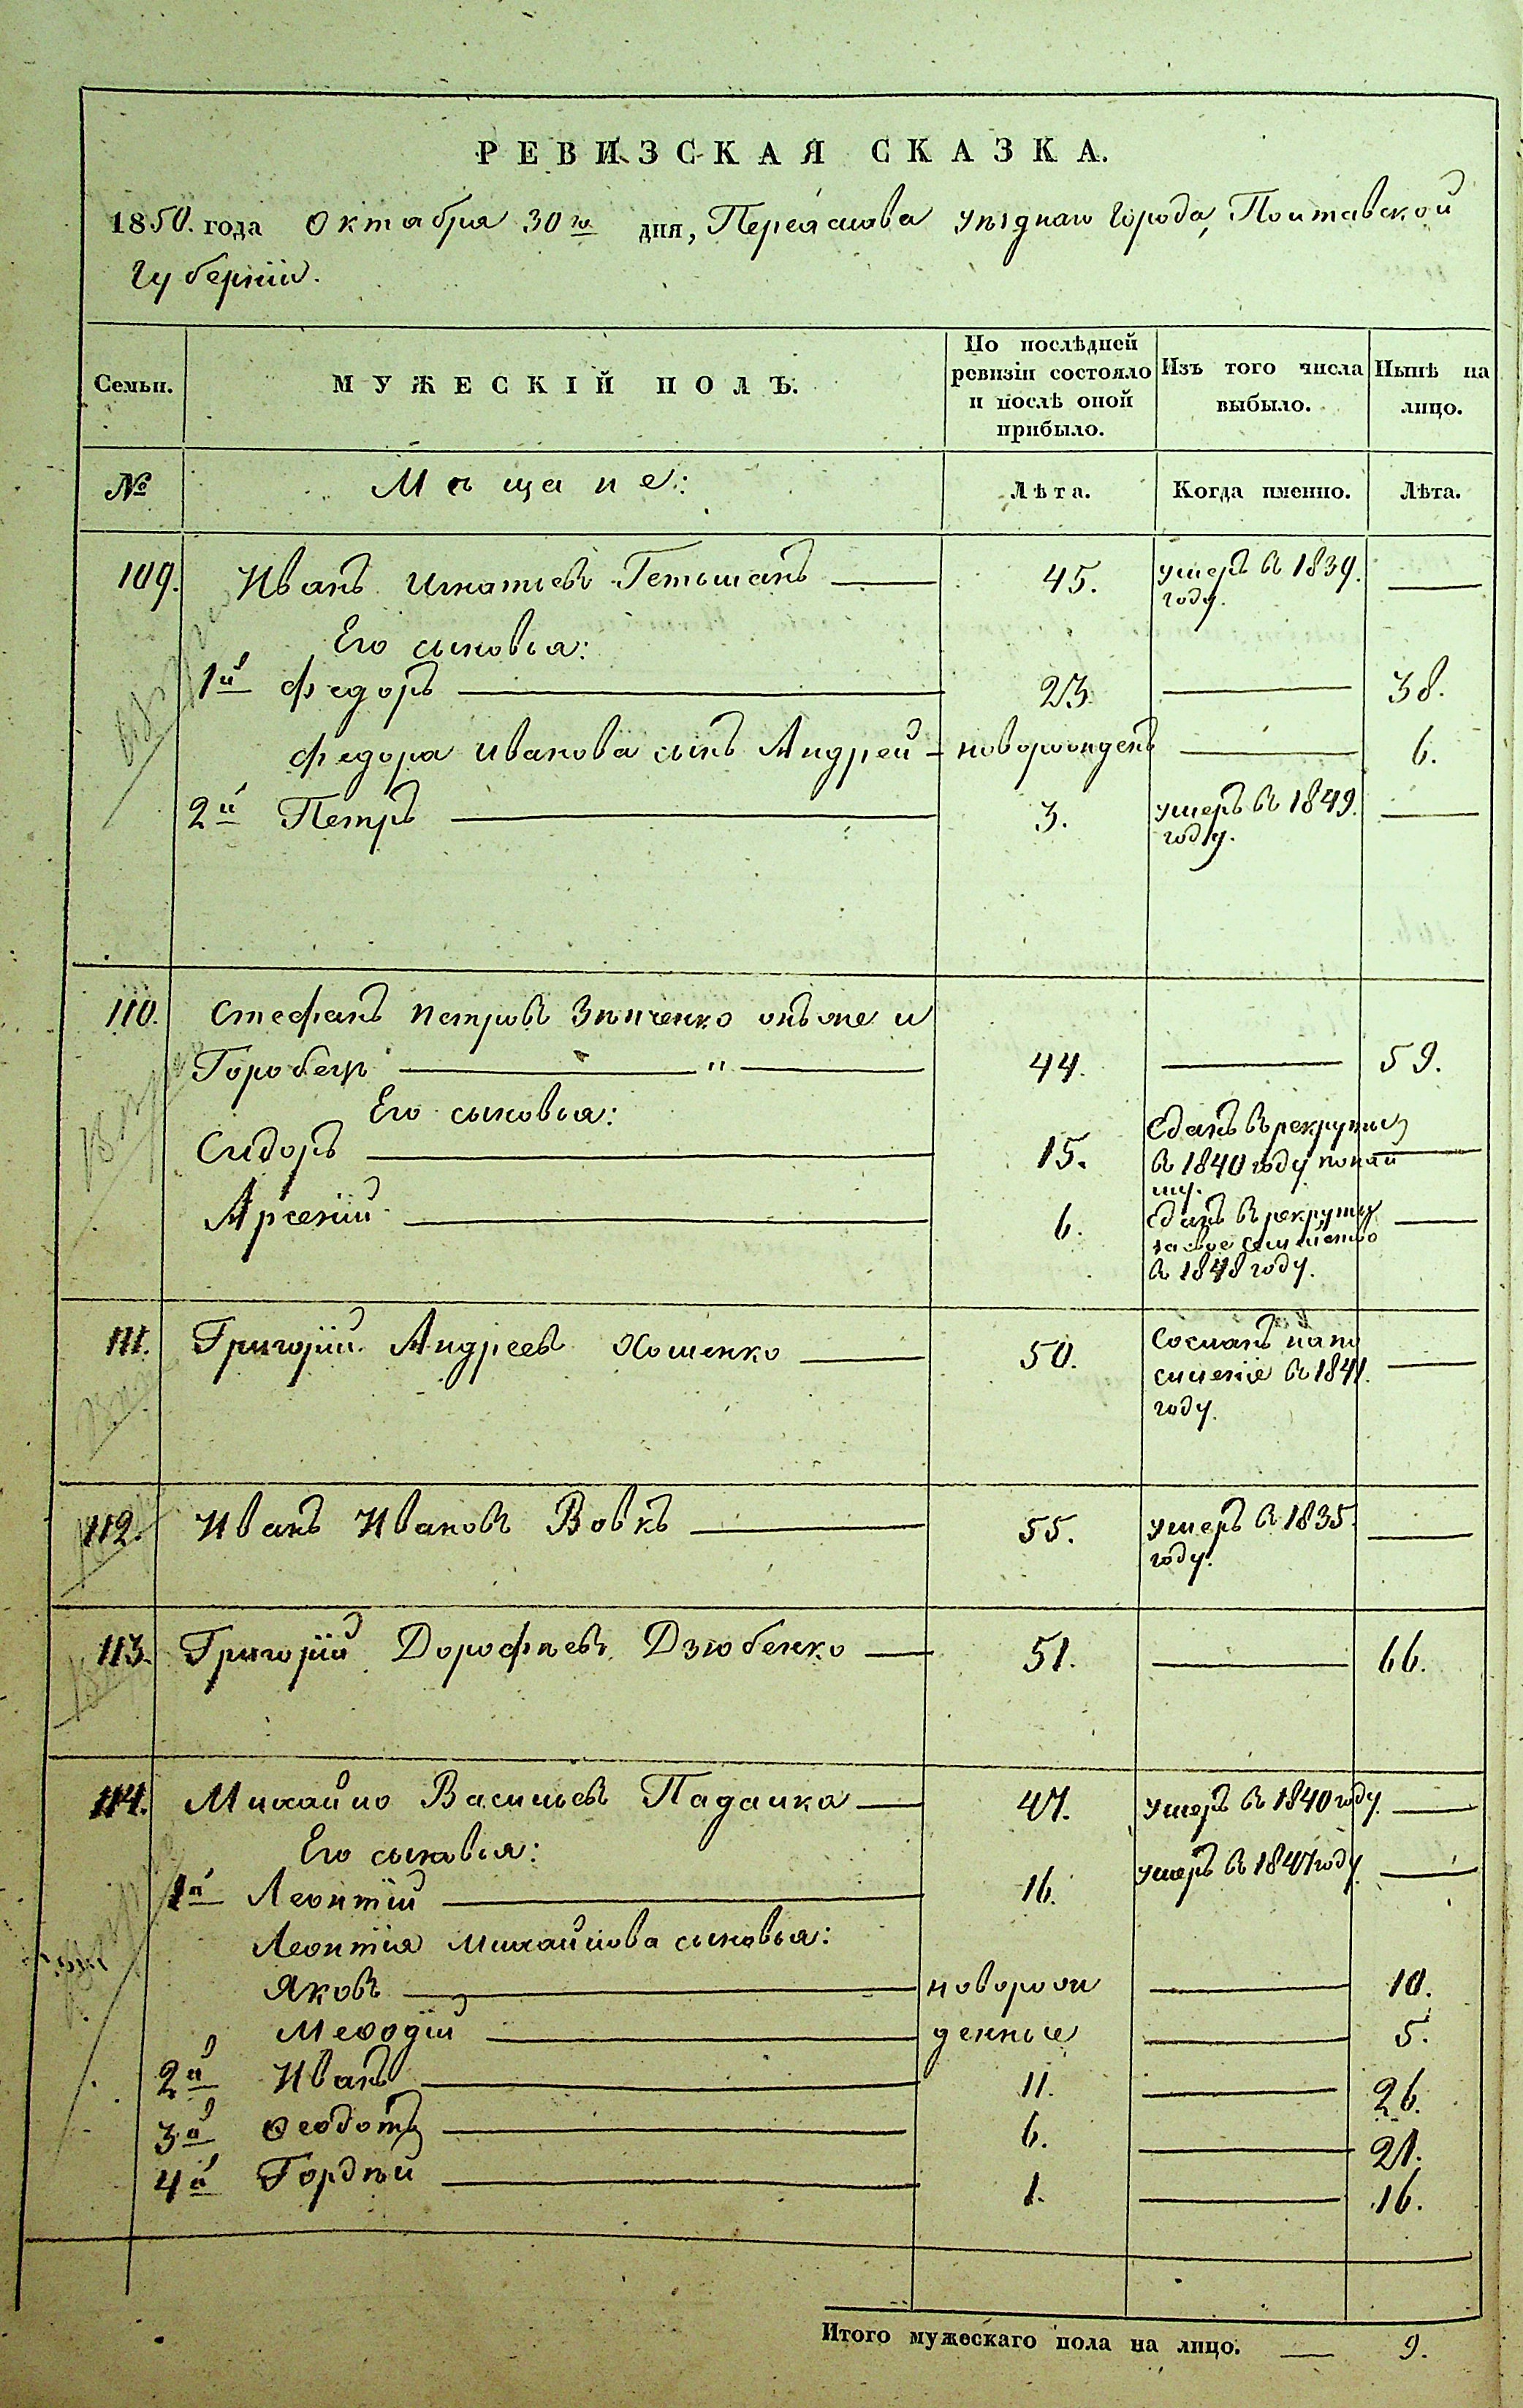 РЕВИЗСКАЯ СКАЗКА.
1850. года Октября 30го дня, Переяслова уѣзднаго города, Полтавской
Губерніи.
Семьи.
МУЖЕСКІЙ ПОЛЪ.
По послѣдней
ревизіи состояло
и послѣ оной
прибыло.
Изъ того числа
выбыло.
Нынѣ на
лицо.
№
Мѣщане:
Лѣта.
Когда именно.
Лѣта.
109. Иванъ Игнатьевъ Гетьманъ — 45. умеръ въ 1839. —
году.
Его сыновья:
1й Федоръ — 23. — 38.
Федора Иванова сынъ Андрей — новорожденъ — 6.
2й Петръ — 3. умеръ въ 1849. —
году.
110. Стефанъ Петровъ Зѣнченко онъ же и
Горобецъ — " — 44. — 59.
Его сыновья:
Сидоръ — 15. Сданъ въ рекруты —
въ 1840 году по най
му.
Арсеній — 6. Сданъ въ рекруты —
за свое семейство
въ 1848 году.
111. Григорій Андреевъ Хоменко — 50. Сосланъ на по —
силеніе въ 1841.
году.
112. Иванъ Ивановъ Вовкъ — 55. умеръ въ 1835. —
году.
113. Григорій Дорофѣевъ Дзюбенко — 51. — 66.
114. Михайло Васильевъ Падалка — 47. умеръ въ 1840 году. —
Его сыновья:
1й Леонтій — 16. умеръ въ 1847 году. —
Леонтія Михайлова сыновья:
Яковъ — новорож — 10.
Меѳодій — денные — 5.
2й Иванъ — 11. — 26.
3й Ѳеодотъ — 6. — 21.
4й Гордѣй — 1. — 16.
Итого мужескаго пола на лицо. — 9.